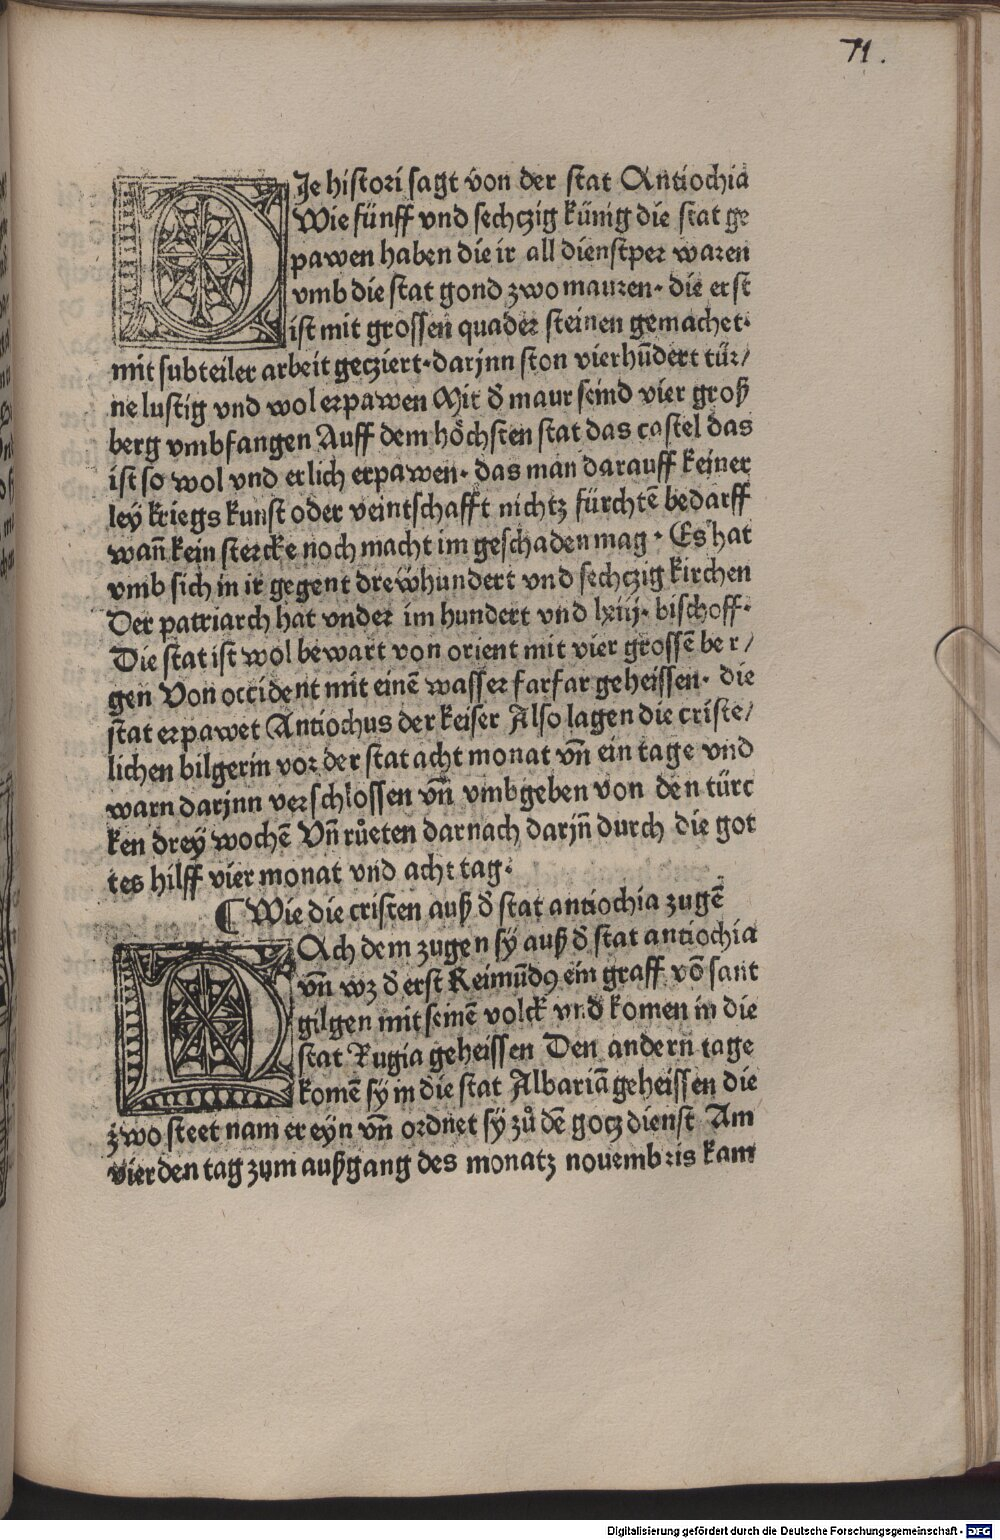 71.
DIe histori sagt von der stat Antiochia
Wie fünff vnd sechczig künig die stat ge
pawen haben die ir all dienstper waren
vmb die stat gond zwo mauren· die erst
ist mit grossen quader steinen gemachet·
mit subteiler arbeit gecziert·darjnn ston vierhūdert tür/
ne lustig vnd wol erpawen Mit d̄ maur seind vier groß
berg vmbfangen Auff dem höchsten stat das castel das
ist so wol vnd erlich erpawen· das man darauff keiner
leÿ kriegs kunst oder veintschafft nichtz fürchtē bedarff
wañ kein stercke noch macht im geschaden mag· Es hat
vmb sich in ir gegent dreẅhundert vnd sechczig kirchen
Der patriarch hat vnder im hundert vnd lxiij· bischoff·
Die stat ist wol bewart von orient mit vier grossē ber/
gen Von occident mit einē wasser farfar geheissen· die
stat erpawet Antiochus der keiser Also lagen die criste/
lichen bilgerin vor der stat acht monat vñ ein tage vnd
warn darjnn verschlossen vñ vmbgeben von den türc
ken dreÿ wochē Vñ růeten darnach darjñ durch die got
tes hilff vier monat vnd acht tag·
¶ Wie die cristen auß d̄ stat antiochia zugē
NAch dem zugen sÿ auß d̄ stat antiochia
vñ wz d̄ erst Reimūdꝰ ein graff vō sant
gilgen mit seinē volck vnd komen in die
stat Rugia geheissen Den andern tage
komē sÿ in die stat Albariā geheissen die
zwo steet nam er eyn vñ ordnet sÿ zů dē gocz dienst Am
vierden tag zum außgang des monatz novembris kam
Digitalisierung gefördert durch die Deutsche Forschungsgemeinschaft - DFG